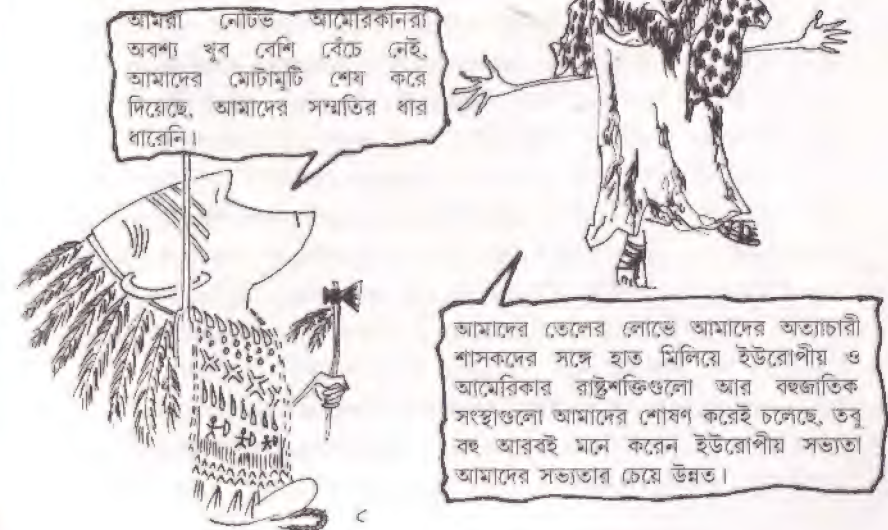 আমরা নেটিভ আমেরিকানরা
অবশ্য খুব বেশি বেঁচে নেই,
আমাদের মোটামুটি শেষ করে
দিয়েছে, আমাদের সম্মতির ধার
ধারেনি।
আমাদের তেলের লোভে আমাদের অত্যাচারী
শাসকদের সঙ্গে হাত মিলিয়ে ইউরোপীয় ও
আমেরিকার রাষ্ট্রশক্তিগুলো আর বহুজাতিক
সংস্থাগুলো আমাদের শোষণ করেই চলেছে, তবু
বহু আরবই মনে করেন ইউরোপীয় সভ্যতা
আমাদের সভ্যতার চেয়ে উন্নত।